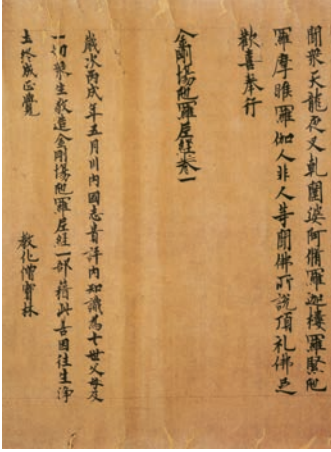 聞衆天龍夜叉乹闥婆阿脩羅迦樓羅緊陁
羅摩睺羅伽人非人等聞佛所說頂礼佛足
歡喜奉行
金剛場陁羅尼經卷一
歲次丙戌年五月川內國志貴評內知識爲七世父母及
一切衆生敬造金剛場陁羅尼經一部藉此善因往生淨
土終成正覺
教化僧寶林